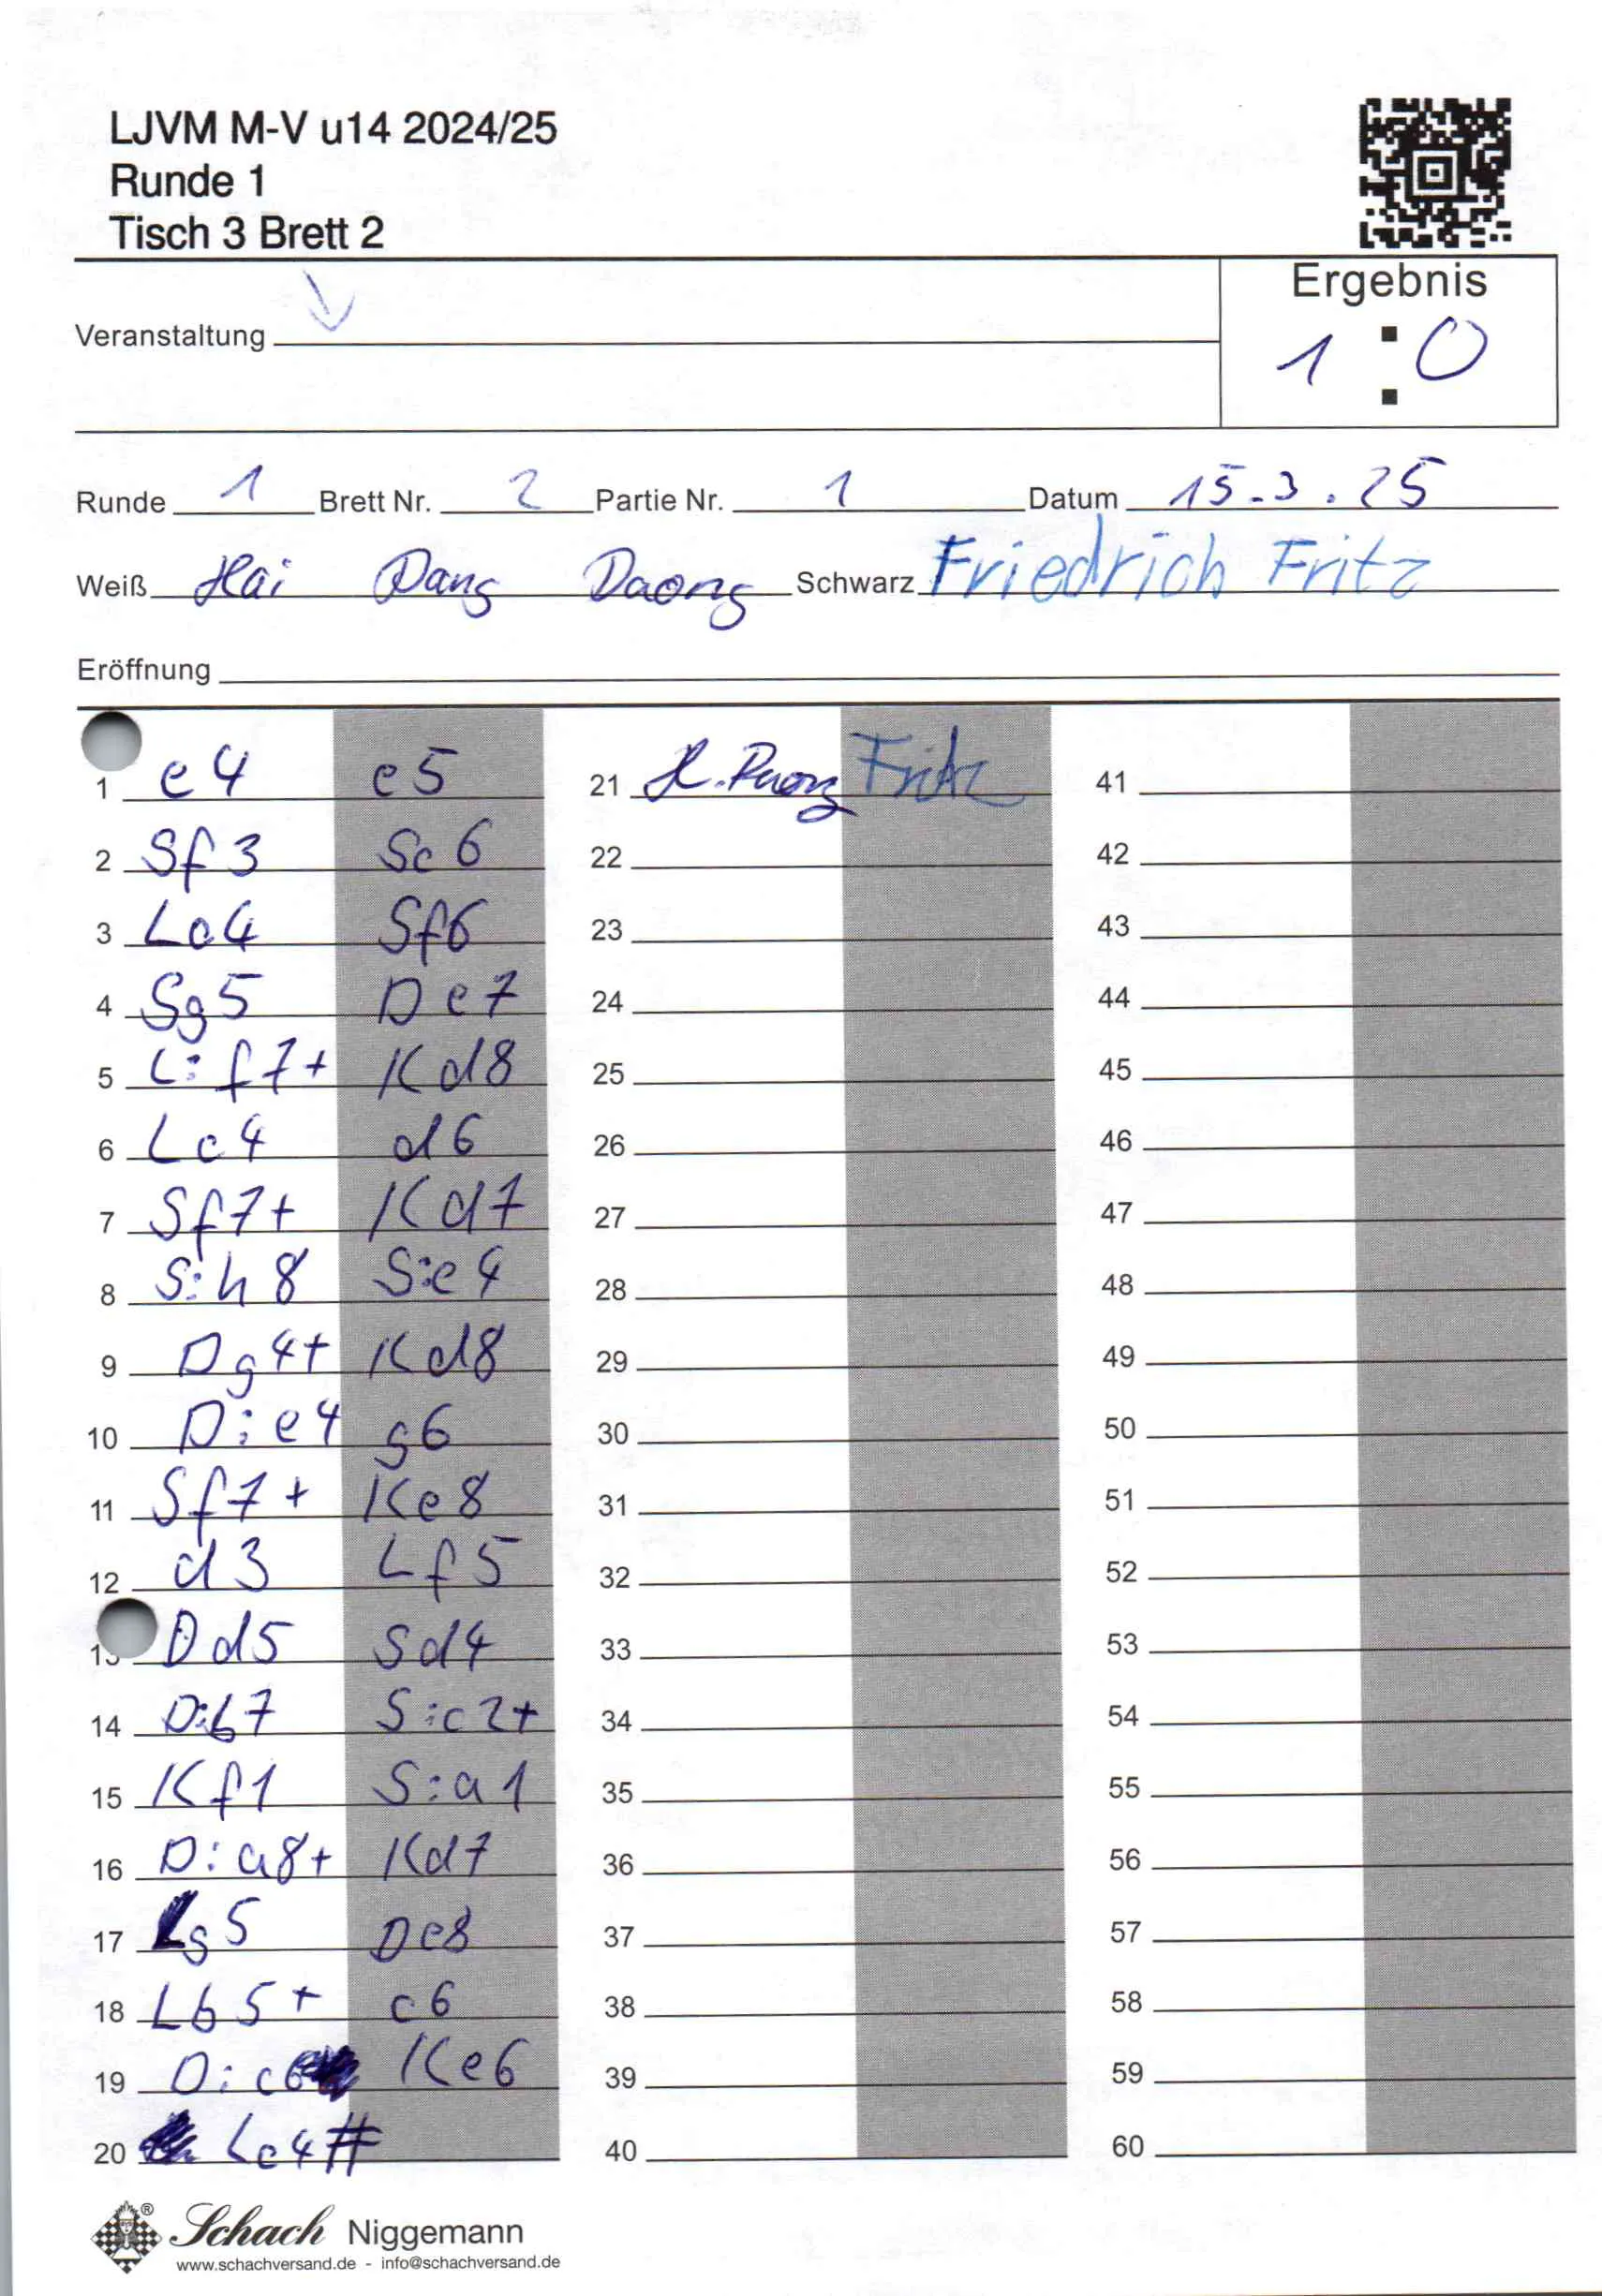 LJVM M-V u14 2024/25
Runde 1
Tisch 3 Brett 2
Veranstaltung
Ergebnis
1 : 0
Runde 1 Brett Nr. 2 Partie Nr. 1 Datum 15.3.25
Weiß Hai Dang Daong Schwarz Friedrich Fritz
Eröffnung
1 e4 e5
2 Sf3 Sc6
3 Lc4 Sf6
4 Sg5 De7
5 L:f7+ Kd8
6 Lc4 d6
7 Sf7+ Kd7
8 S:h8 S:e4
9 Dg4+ Kd8
10 D:e4 g6
11 Sf7+ Ke8
12 d3 Lf5
13 Dd5 Sd4
14 D:b7 S:c2+
15 Kf1 S:a1
16 D:a8+ Kd7
17 Lg5 De8
18 Lb5+ c6
19 D:c6 Ke6
20 Lc4#
21 H. Duong Fritz
22
23
24
25
26
27
28
29
30
31
32
33
34
35
36
37
38
39
40
41
42
43
44
45
46
47
48
49
50
51
52
53
54
55
56
57
58
59
60
® Schach Niggemann
www.schachversand.de - info@schachversand.de